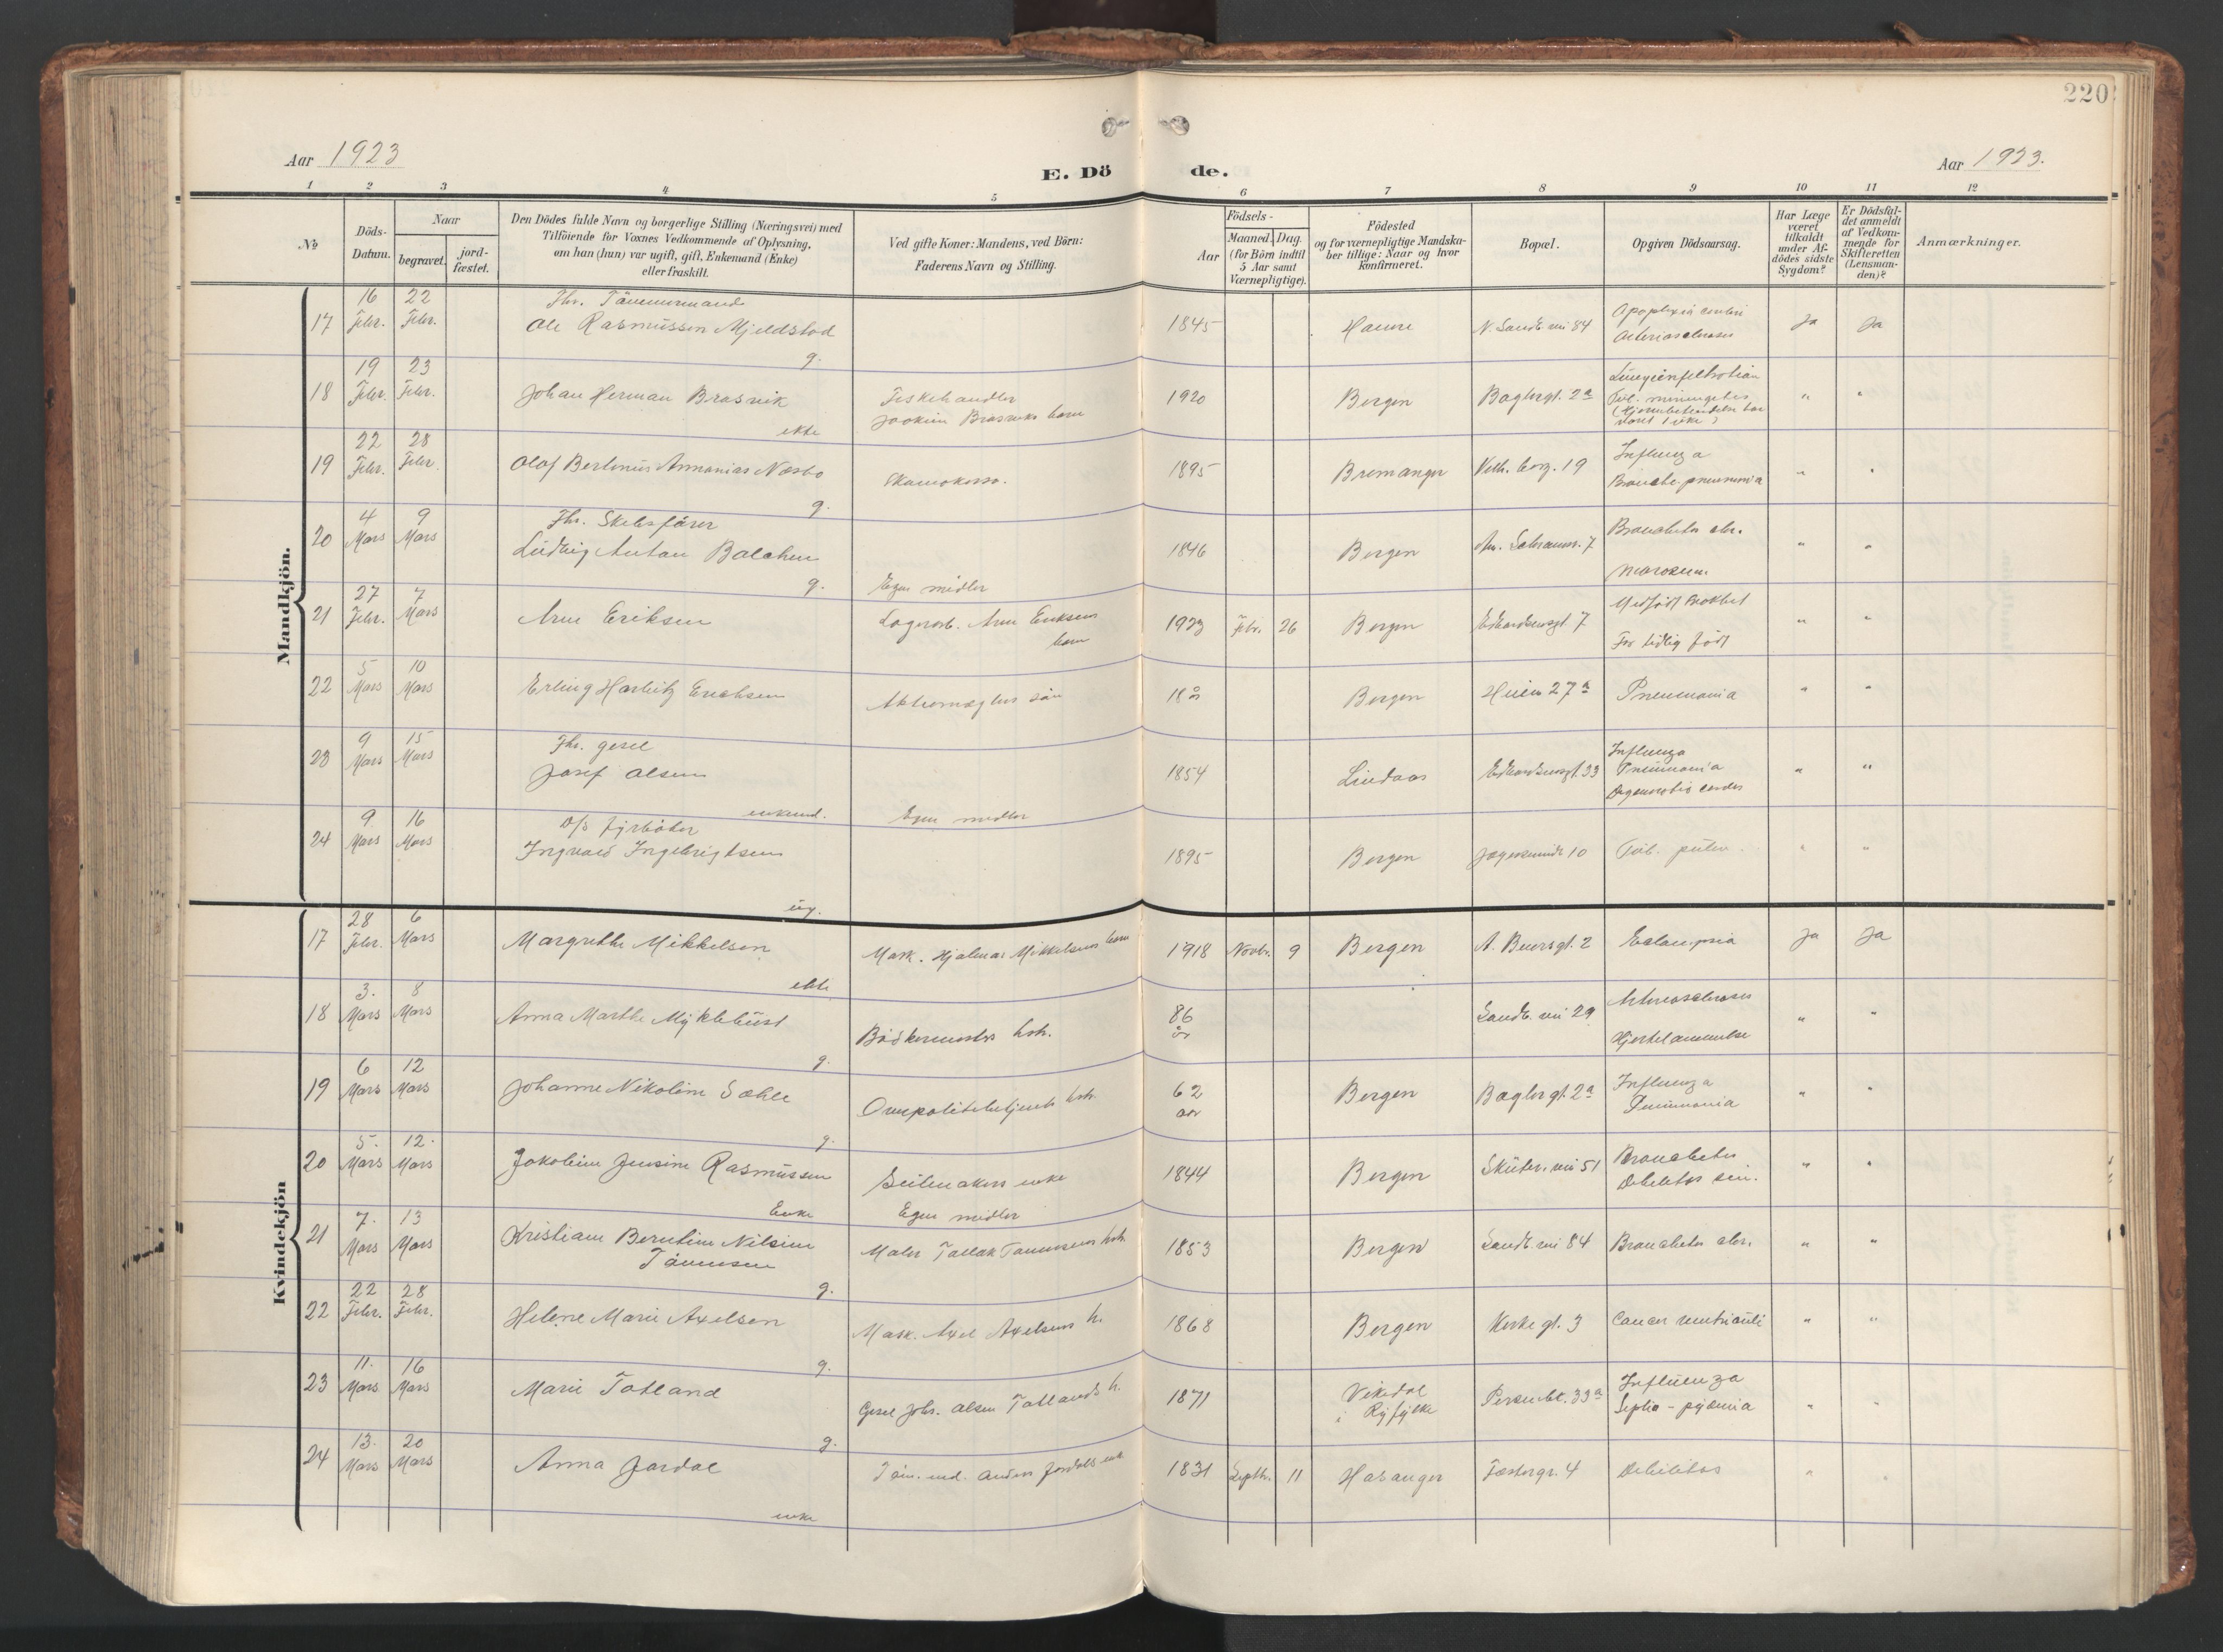 220
Aar 1923
E. Döde.
Aar 1923.
1 2 3 4 5 6 7 8 9 10 11 12
No
Döds-Datum.
Naar
begravet.
jord-fæstet.
Den Dödes fulde Navn og borgerlige Stilling (Næringsvei) med
Tilföiende for Voxnes Vedkommende af Oplysning,
om han (hun) var ugift, gift, Enkemand (Enke)
eller fraskilt.
Ved gifte Koner: Mandens, ved Börn:
Faderens Navn og Stilling.
Födsels-
Aar
Maaned. Dag.
(for Börn indtil
5 Aar samt
Værnepligtige).
Födested
og for værnepligtige Mandska-
ber tillige: Naar og hvor
konfirmeret.
Bopæl.
Opgiven Dödsaarsag.
Har Læge
været
tilkaldt
under Af-
dödes sidste
Sygdom?
Er Dödsfal-
det anmeldt
af Vedkom-
mende for
Skifteretten
(Lensman-
den)?
Anmærkninger.
Mandkjön.
17 16 Febr. 22 Febr. Fhv. Tömmermand
Ole Rasmussen Mjeldstad 1845 Hamre N. Sandv. vei 84 Apoplexia cerebri
Arteriosclerosis Ja Ja
g.
18 19 Febr. 23 Febr. Johan Herman Brasvik Fiskehandler
Joakim Brasviks barn 1920 Bergen Baglergt. 2a
Tub. miningitis
" "
ekte
19 22 Febr. 28 Febr. Olaf Bertinus Annanias Næsbø 1895 Bremanger 19 Influenza
Broncho pneumonia " "
g.
20 4 Mars 9 Mars Fhv. Skibsfører
Ludvig Anton Balchen 1846 Bergen 7 Bronchitis chr.
" "
g. Egne midler
21 27 Febr. 7 Mars Arne Eriksen Lagerarb. Arne Eriksens
barn 1923 Febr. 26 Bergen Edvardsensgt. 7 Medfødt svakhet
For tidlig född " "
22 5 Mars 10 Mars Erling Harbitz Erichsen sön 18 år Bergen 27a Pneumonia " "
23 9 Mars 15 Mars Fhv. gesel
Josef Olsen 1854 Lindaas Edvardsensgt. 33 Influenza
Pneumonia
Degeneratio cordis " "
enkemd. Egne midler
24 9 Mars 16 Mars D/s fyrböter
Ingvald Ingebrigtsen 1895 Bergen 10 Tub. pulm. " "
ug.
Kvindekjön
17 28 Febr. 6 Mars Margrethe Mikkelsen Mask. Hjalmar Mikkelsens barn 1918 Novbr. 9 Bergen A. Beuersgt. 2 Eclampsia Ja Ja
ekte
18 3. Mars 8 Mars Anna Marthe Myklebust Bödkermesters hstr. 86 år Sandv. vei 29 Arteriosclerosis
Hjertelammelse " "
g.
19 6 Mars 12 Mars Johanne Nikoline Sæhle hstr. 62 aar Bergen Baglergt. 2a Influenza
Pneumonia " "
g.
20 5. Mars 12. Mars Jakobine Jensine Rasmussen Seilmakers enke 1844 Bergen Skutev. vei 51 Bronchitis
Debilitas sen. " "
Enke Egne midler
21 7. Mars 13 Mars Kristiane Berntine Nilsine
Tönnesen Maler Tallak Tönnesens hstr. 1853 Bergen Sandv. vei 84 Bronchitis chr. " "
g.
22 22 Febr. 28 Febr. Helene Marie Axelsen Mask. Axel Axelsens h. 1868 Bergen Kirkegt. 3 Cancer ventriculi " "
g.
23 11. Mars 16 Mars Marie Totland Gesel Johs. Olsen Totlands h. 1871 Vikedal
i Ryfylke 33a Influenza
Septico-pyæmia " "
g.
24 13. Mars 20 Mars Anna Jordal Töm. md. Anders Jordals enke 1831 Septbr. 11 Hardanger Fæstergt. 4 Debilitas " "
enke